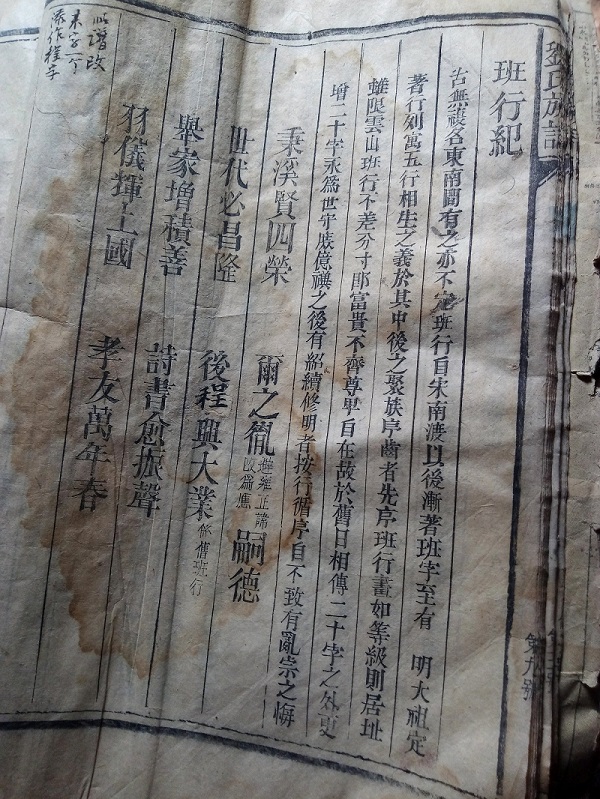 劉氏族譜
第九號
班行紀
古無禩各東南間有之亦不定班行自宋南渡以後漸著班字至有 明太祖定
著行列寓五行相生之義於其中後之聚族序齒者先序班行畫如等級則居址
雖限雲山班行不差分寸即富貴不齊尊卑自在故於舊日相傳二十字之外更
增二十字永爲世守庶億禩之後有紹續修明者按行循序自不致有亂宗之悔
秉溪賢四榮 爾之胤避雍正諱改爲應嗣德
世代必昌隆 後程興大業係舊班行
舉家增積善 詩書愈振聲
羽儀輝上國 孝友萬年春
譜改
字一
添作程字